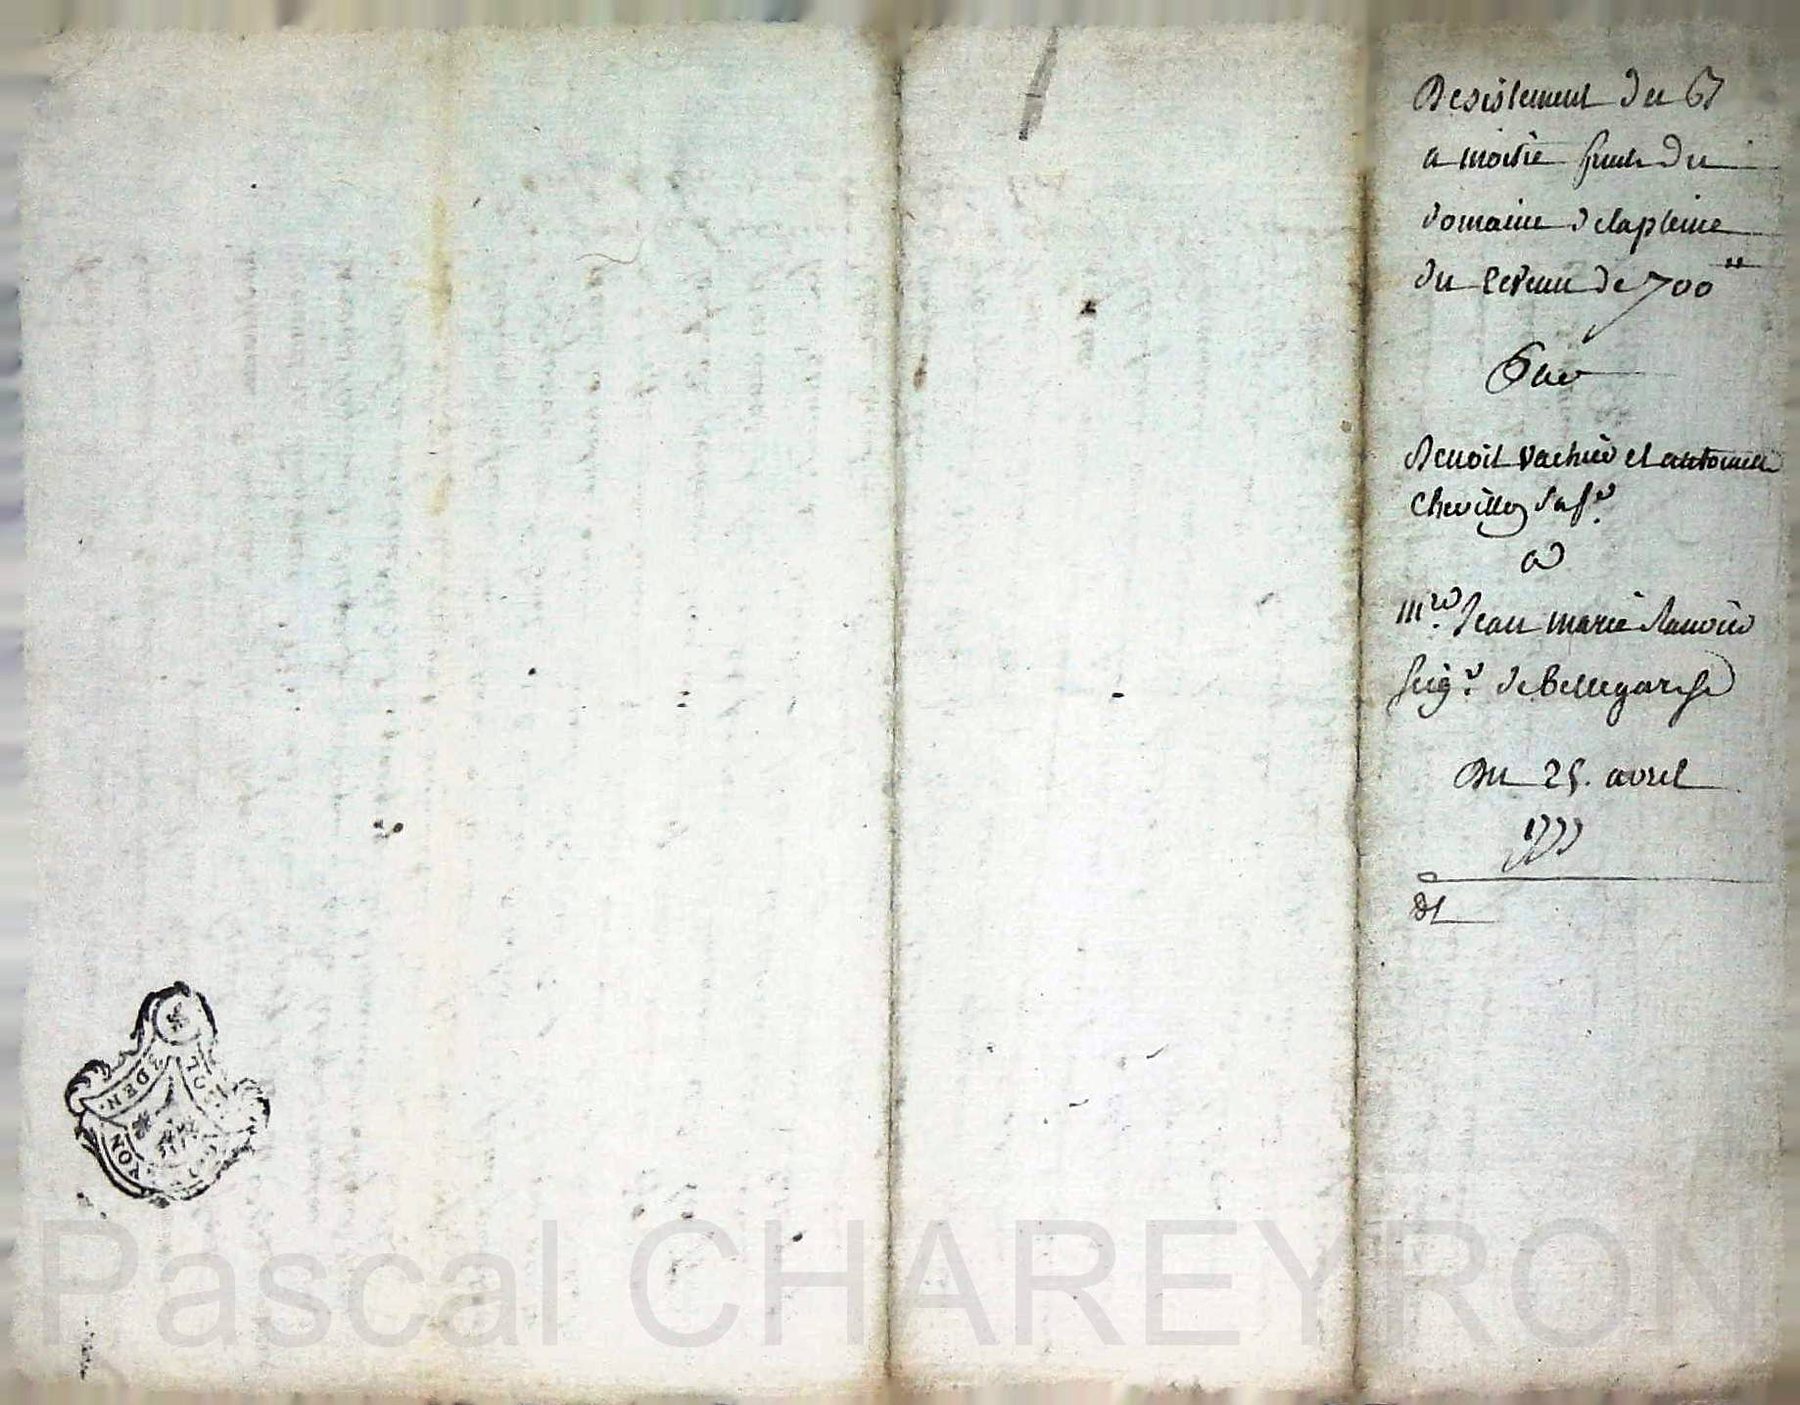 Desistement du Bl
a moitié fruits du
domaine delapleine
du Revenu de 700"
Par
Benoit vachier et antoinette
Chevillon sa fe
a
Mre Jean marie
seigr de Bellegarde
Du 25. avril
1777
DEN
YON
Pascal CHAREYRON